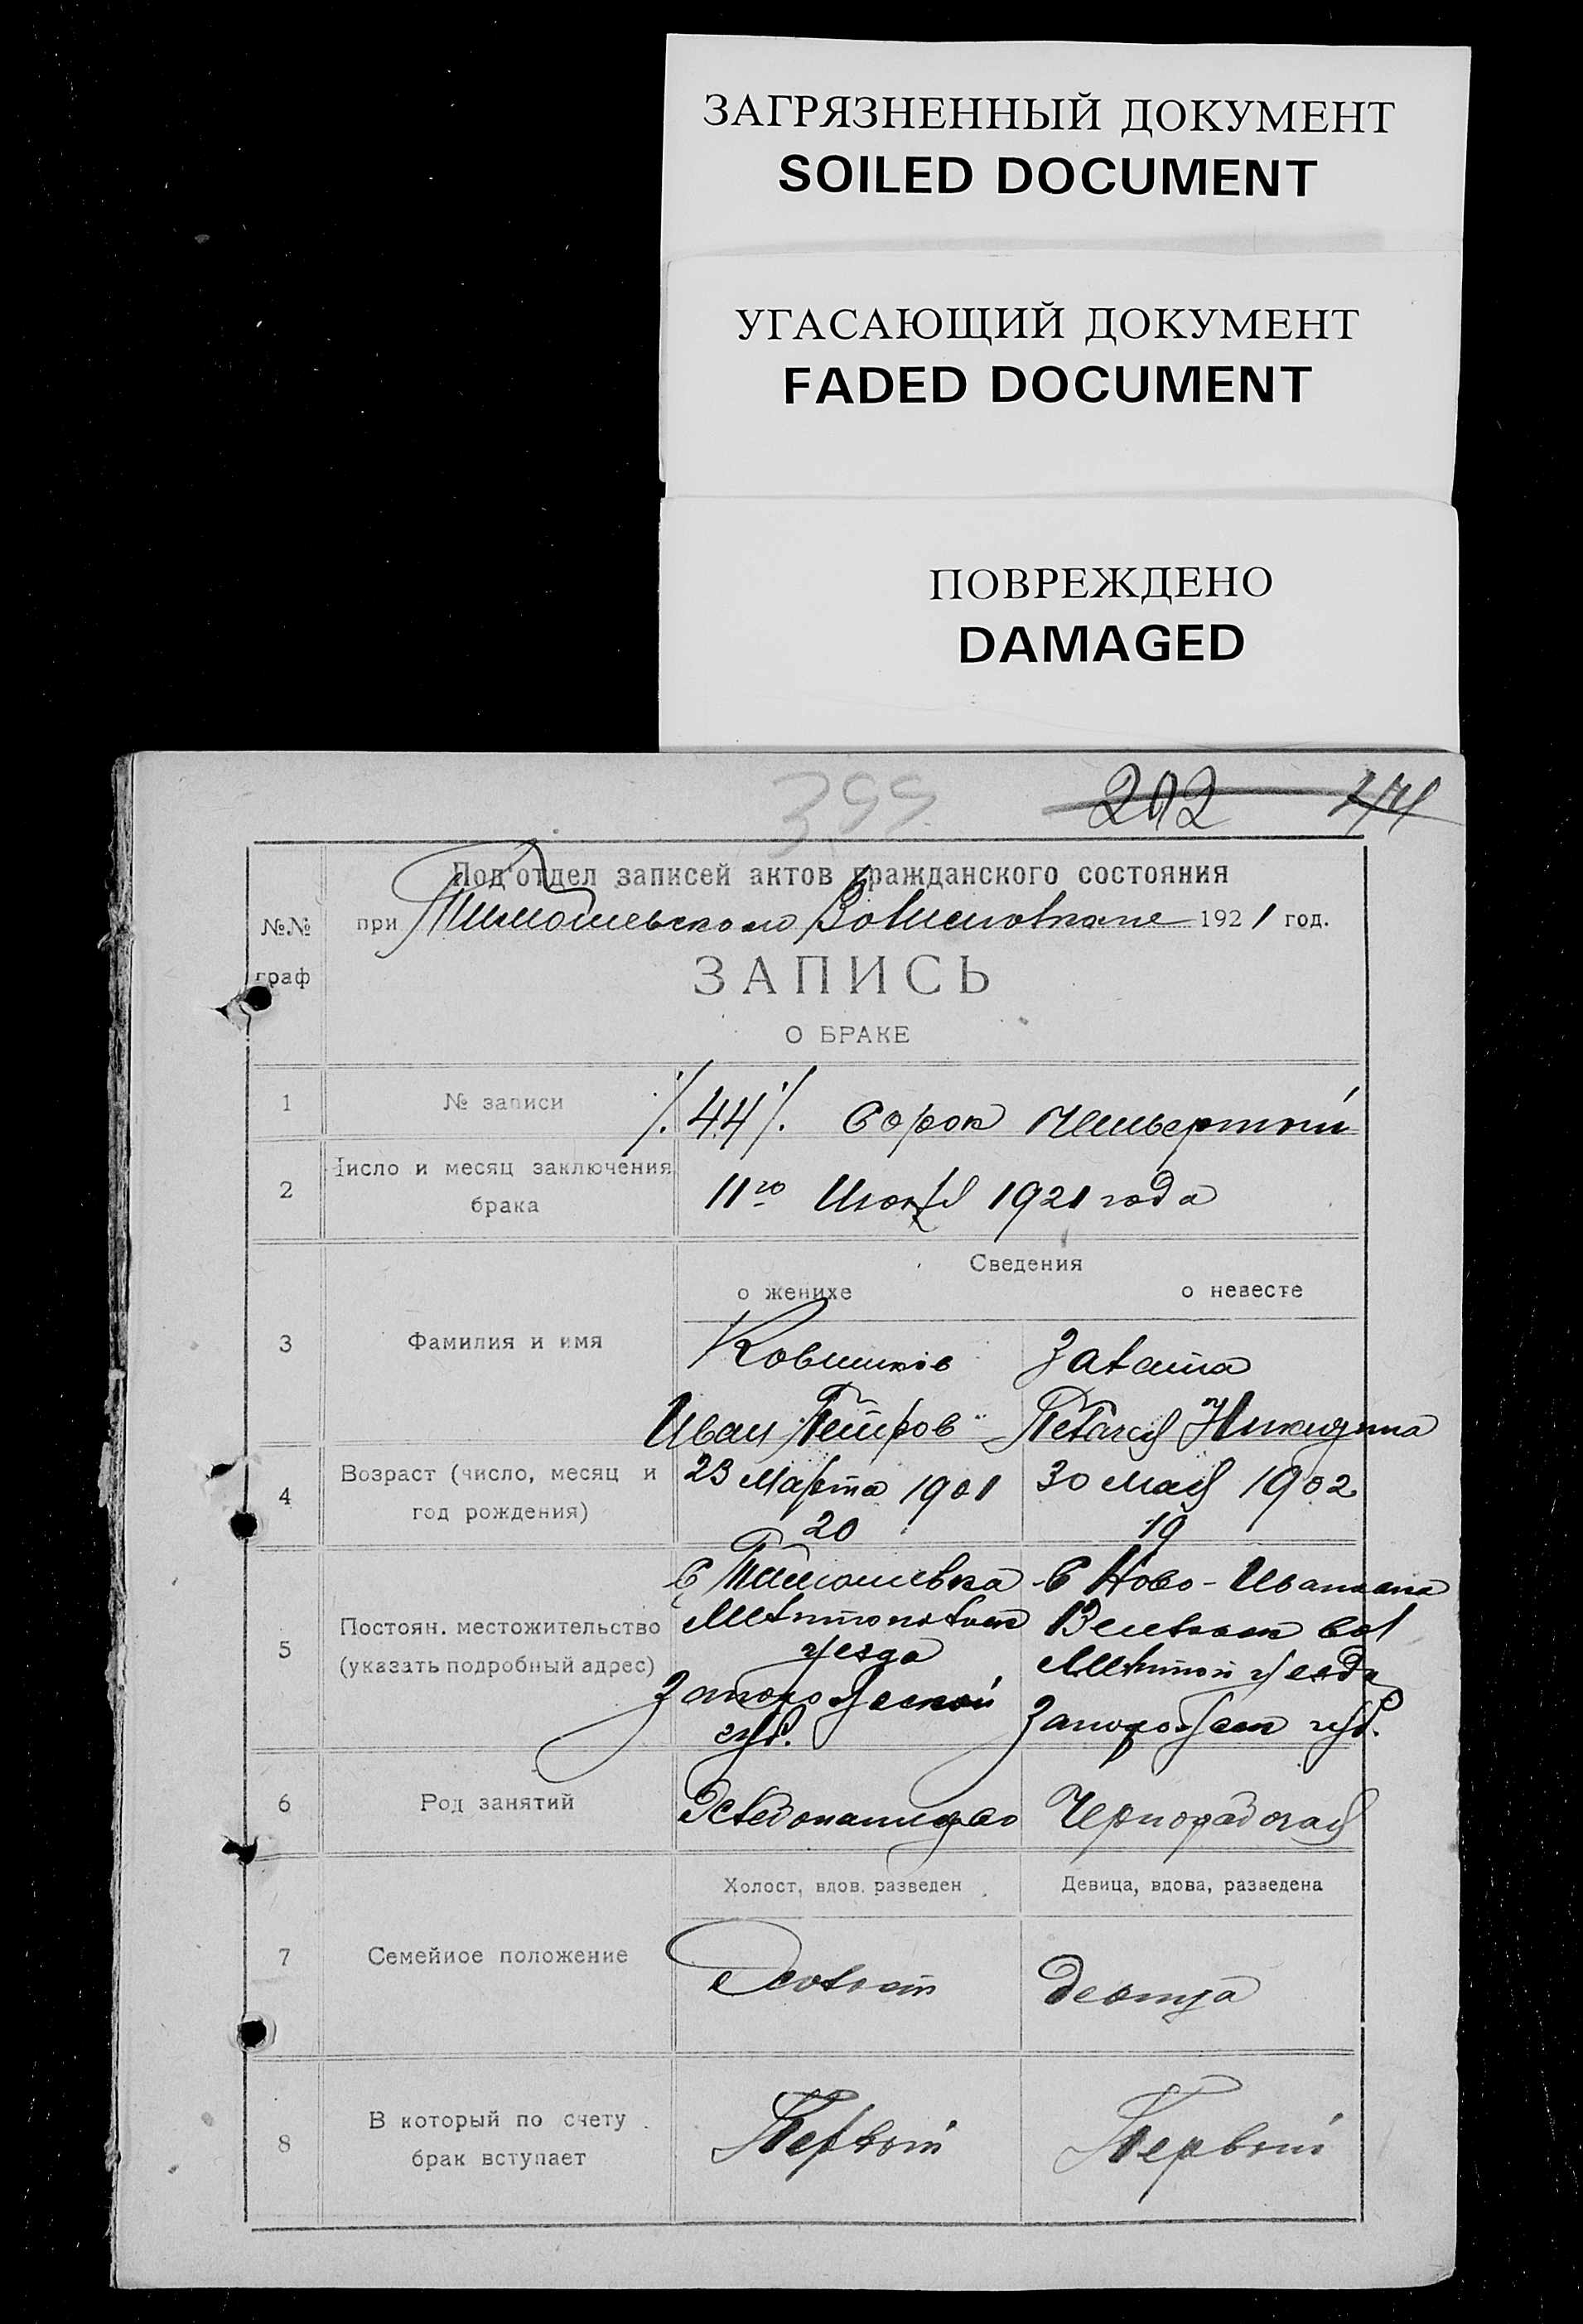 ЗАГРЯЗНЕННЫЙ ДОКУМЕНТ
SOILED DOCUMENT
УГАСАЮЩИЙ ДОКУМЕНТ
FADED DOCUMENT
ПОВРЕЖДЕНО
DAMAGED
399.
202
№№ граф
Под'отдел записей актов гражданского состояния
при Тимошевском Волисполкоме 1921 год.
ЗАПИСЬ
О БРАКЕ
1 № записи ./.44./. Сорок четвертый
2 Число и месяц заключения
брака
11го Июля 1921 года
Сведения
о женихе о невесте
3 Фамилия и имя
Ковшиков
Иван Петров
Пелагея Никитина
4 Возраст (число, месяц и
год рождения)
23 Марта 1901 30 Мая 1902
20 19
5 Постоян. местожительство
(указать подробный адрес)
С Тимошевка
Мелитопольск
уезда
Запорожской
губ.
С Ново-Ивановка
вол
Мелитоп уезда
Запорожск губ.
6 Род занятий
Хлебопашество Чернорабочая
7 Семейное положение
Холост, вдов. разведен Девица, вдова, разведена
Холост девица
8 В который по счету
брак вступает
Первый Первый